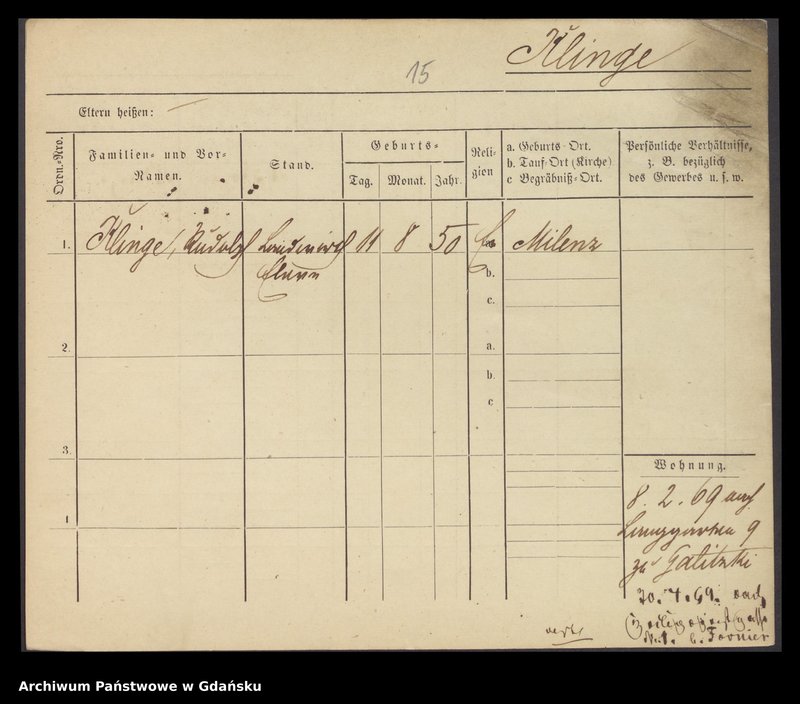 Klinge
15
Eltern heißen: —
Ordn.-Nro.
Familien- und Vor-
Namen.
Stand.
Geburts-
Tag. Monat. Jahr.
Reli-
gien
a. Geburts-Ort.
b. Tauf-Ort (Kirche)
c Begräbniß-Ort.
Persönliche Verhältnisse,
z. B. bezüglich
des Gewerbes u. s. w.
1. Klinge, Rudolph Landwirth 11 8 50 Ev a. Milenz
b.
c.
2. a.
b.
c
3.
Wohnung.
8. 2. 69 auf
Langgarten 9
zu Galitzki
20. 4. 69. nach
No. 1. b. Fornier
Archiwum Państwowe w Gdańsku